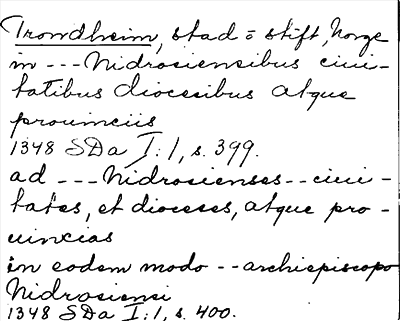 Trondheim, stad = stift, Norge
in --- Nidrosiensibus ciui-
tatibus diocesibus atque
prouinciis
1348 SDa I:1, s. 399.
ad --- Nidrosienses -- ciui-
tates, et dioceses, atque pro-
uincias
in eodem modo -- archiepiscopo
Nidrosiensi
1348 SDa I:1, s. 400.